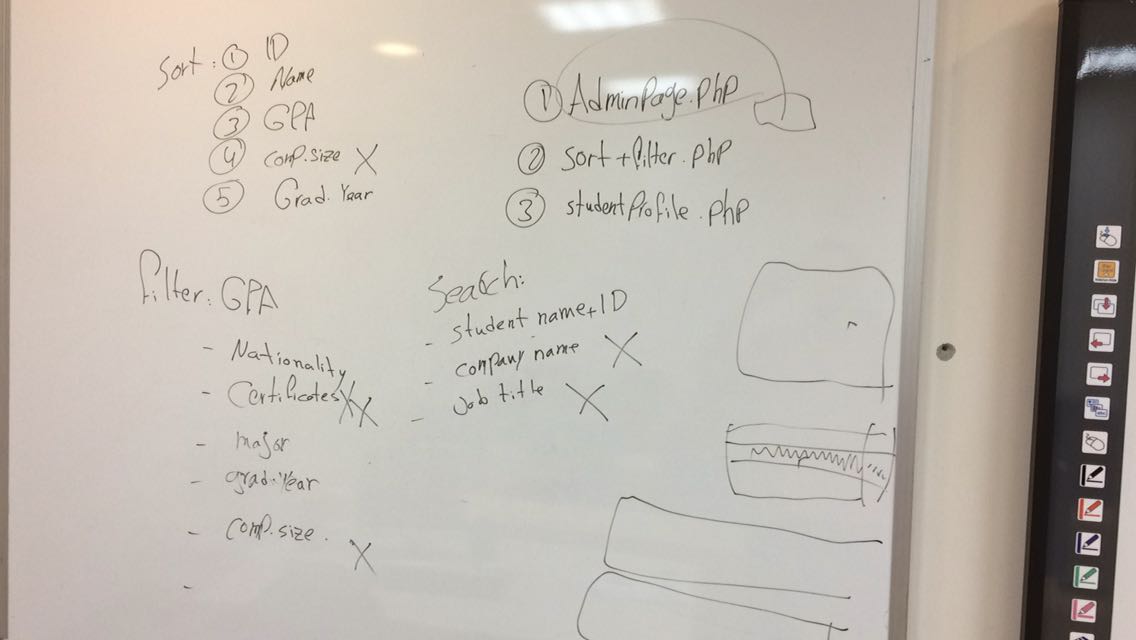 Sort: ① ID
② Name
③ GPA
④ comp.size X
⑤ Grad.Year
① AdminPage.php
② Sort+filter.php
③ studentProfile.php
filter: GPA
- Nationality
- Certificates XX
- major
- grad.Year
- comp.size. X
-
Search:
- student name+ID
- company name X
- Job title X